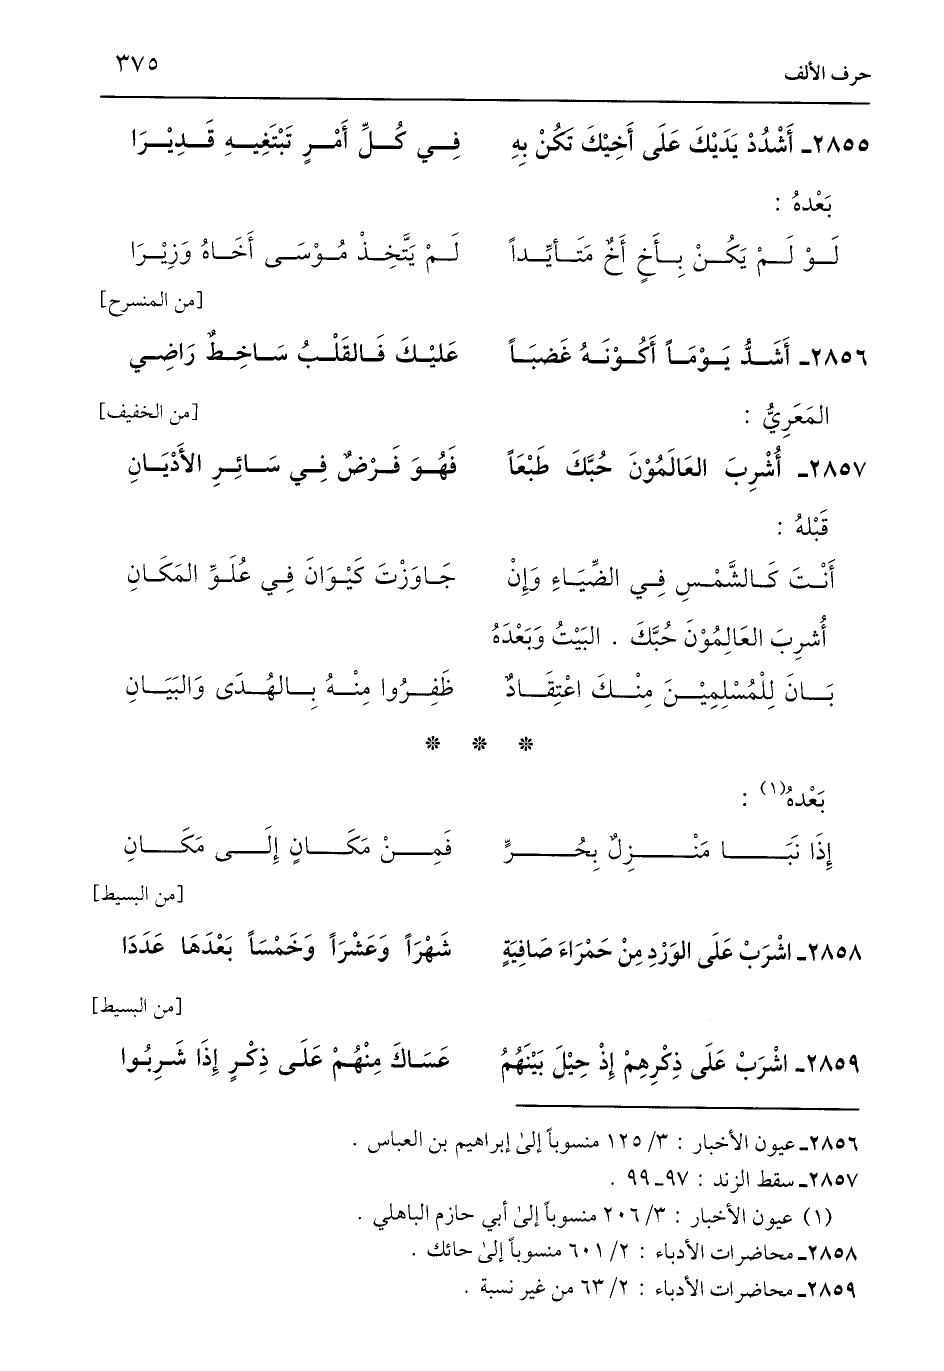 حرف الألف ٣٧٥
٢٨٥٥ـ أَشْدُدْ يَدَيْكَ عَلَى أَخِيْكَ تَكُنْ بِهِ فِي كُلِّ أَمْرٍ تَبْتَغِيهِ قَدِيْرَا
بَعْدهُ :
لَوْ لَمْ يَكُنْ بِأَخٍ أَخٌ مَتَأيِّداً لَمْ يَتَّخِذْ مُوْسَى أَخَاهُ وَزِيْرَا
[من المنسرح]
٢٨٥٦ـ أَشَدُّ يَوْمَاً أَكُوْنَهُ غَضبَاً عَليْكَ فَالقَلْبُ سَاخِطٌ رَاضِي
المَعَرِيُّ : [من الخفيف]
٢٨٥٧ـ أُشْرِبَ العَالَمُوْنَ حُبَّكَ طَبْعَاً فَهُوَ فَرْضٌ فِي سَائِرِ الأَدْيَانِ
قَبْلهُ :
أَنْتَ كَالشَّمْسِ فِي الضِّيَاءِ وَإِنْ جَاوَزْتَ كَيْوَانَ فِي عُلَوِّ المَكَانِ
أُشرِبَ العَالِمُوْنَ حُبَّكَ . البَيْتُ وَبَعْدَهُ
بَانَ لِلْمُسْلِمِيْنَ مِنْكَ اعْتِقَادٌ ظَفِرُوا مِنْهُ بِالهُدَى وَالبَيَانِ
* * *
بَعْدهُ(١) :
إِذَا نَبَا مَنْزِلٌ بِحُرٍّ فَمِنْ مَكَانٍ إِلَى مَكَانِ
[من البسيط]
٢٨٥٨ـ اشْرَبْ عَلَى الوَرْدِ مِنْ حَمْرَاءَ صَافِيَةٍ شَهْرَاً وَعَشْرَاً وَخَمْسَاً بَعْدَهَا عَدَدَا
[من البسيط]
٢٨٥٩ـ اشْرَبْ عَلَى ذِكْرِهِمْ إِذْ حِيْلَ بَيْنَهُمُ عَسَاكَ مِنْهُمْ عَلَى ذِكْرٍ إِذَا شَرِبُوا
٢٨٥٦ـ عيون الأخبار : ٣/ ١٢٥ منسوباً إلىٰ إبراهيم بن العباس .
٢٨٥٧ـ سقط الزند : ٩٧ـ ٩٩ .
(١) عيون الأخبار : ٣/ ٢٠٦ منسوباً إلىٰ أبي حازم الباهلي .
٢٨٥٨ـ محاضرات الأدباء : ٢/ ٦٠١ منسوباً إلىٰ حائك .
٢٨٥٩ـ محاضرات الأدباء : ٢/ ٦٣ من غير نسبة .